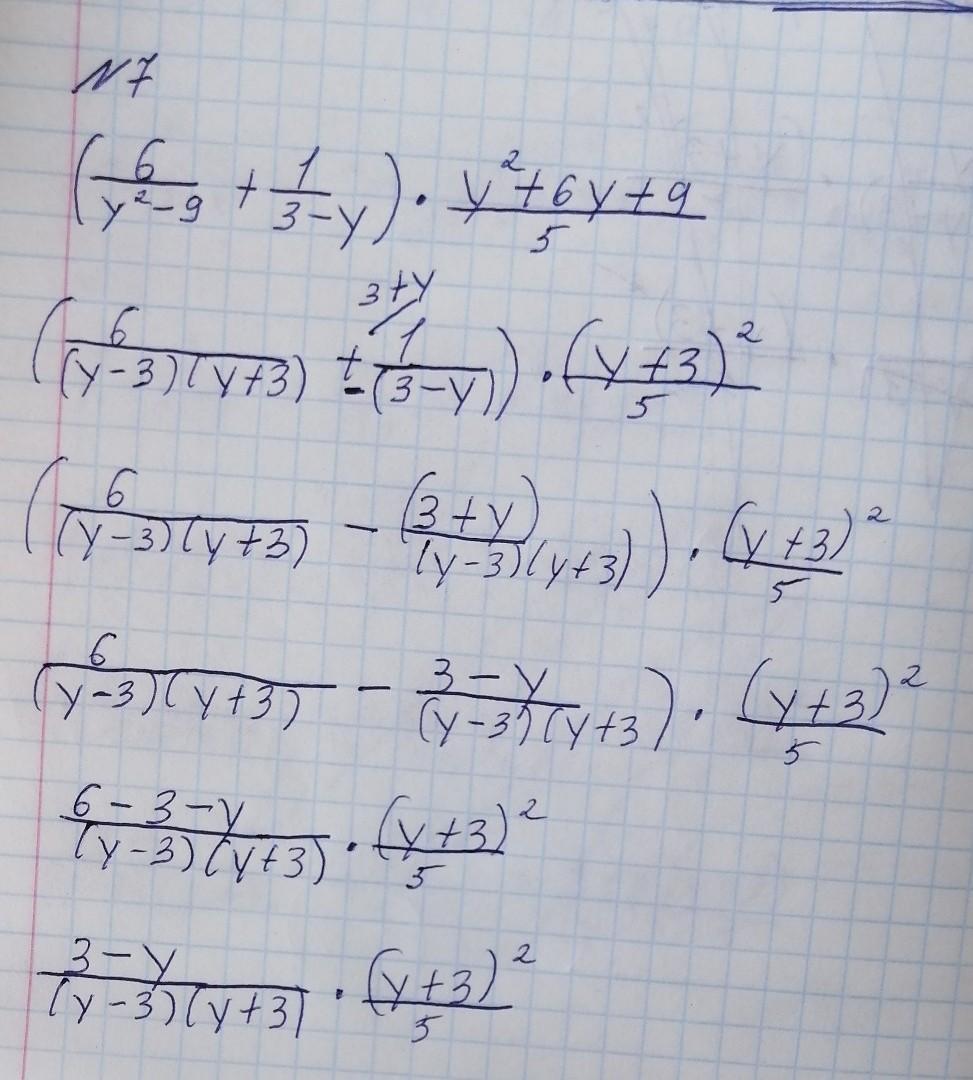 N7
(6/(y²-9) + 1/(3-y)) · (y²+6y+9)/5
3+y
(6/((y-3)(y+3)) ± 1/(-(3-y))) · (y+3)²/5
(6/((y-3)(y+3)) - (3+y)/((y-3)(y+3))) · (y+3)²/5
6/((y-3)(y+3)) - (3-y)/((y-3)(y+3))) · (y+3)²/5
(6-3-y)/((y-3)(y+3)) · (y+3)²/5
(3-y)/((y-3)(y+3)) · (y+3)²/5